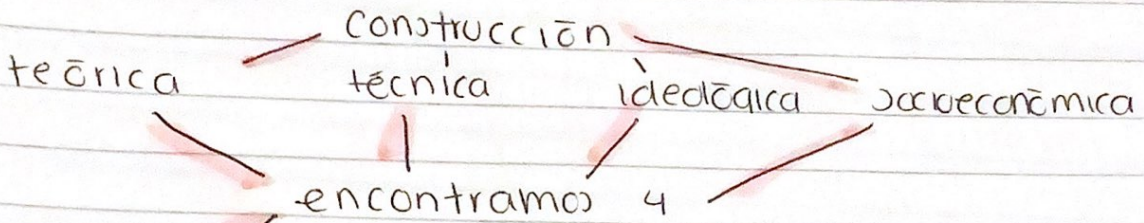 construcción
teórica técnica ideológica socioeconómica
encontramos 4